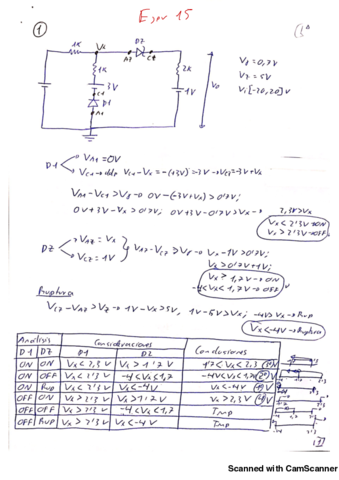 Ejer 15
1
1K
Vx
DZ
AZ
CZ
1K
3V
C1
D1
A1
2K
1V
Vo
Vγ = 0,7V
Vz = 5V
Vi [-20,20] V
D1
VA1 = 0V
VA1 - VC1 > Vγ → 0V - (-3V + Vx) > 0,7V;
0V + 3V - Vx > 0,7V; 0V + 3V - 0,7V > Vx → 2,3V > Vx
Vx < 2'3V → ON
Vx > 2'3V → OFF
DZ
VAZ = Vx
VCZ = 1V
VAZ - VCZ > Vγ → Vx - 1V > 0,7V;
Vx > 0,7V + 1V;
Vx > 1,7V → ON
-4 < Vx < 1,7V → OFF
Ruptura
VCZ - VAZ > Vz → 1V - Vx > 5V; 1V - 5V > Vx; -4V > Vx → Rup
Vx < -4V → Ruptura
Analisis
Conclusiones
D1 DZ D1 DZ
ON ON Vx < 2,3V Vx > 1'7V 1'7 < Vx < 2,3
ON OFF Vx < 2'3V -4 < Vx < 1,7 -4V < Vx < 1,7
ON Rup Vx < 2'3V Vx < -4V Vx < -4V
OFF ON Vx > 2'3V Vx > 1'7V Vx > 2,3V
OFF OFF Vx > 2'3V -4 < Vx < 1,7 Imp
OFF Rup Vx > 2'3V Vx < -4V Imp
1
Scanned with CamScanner